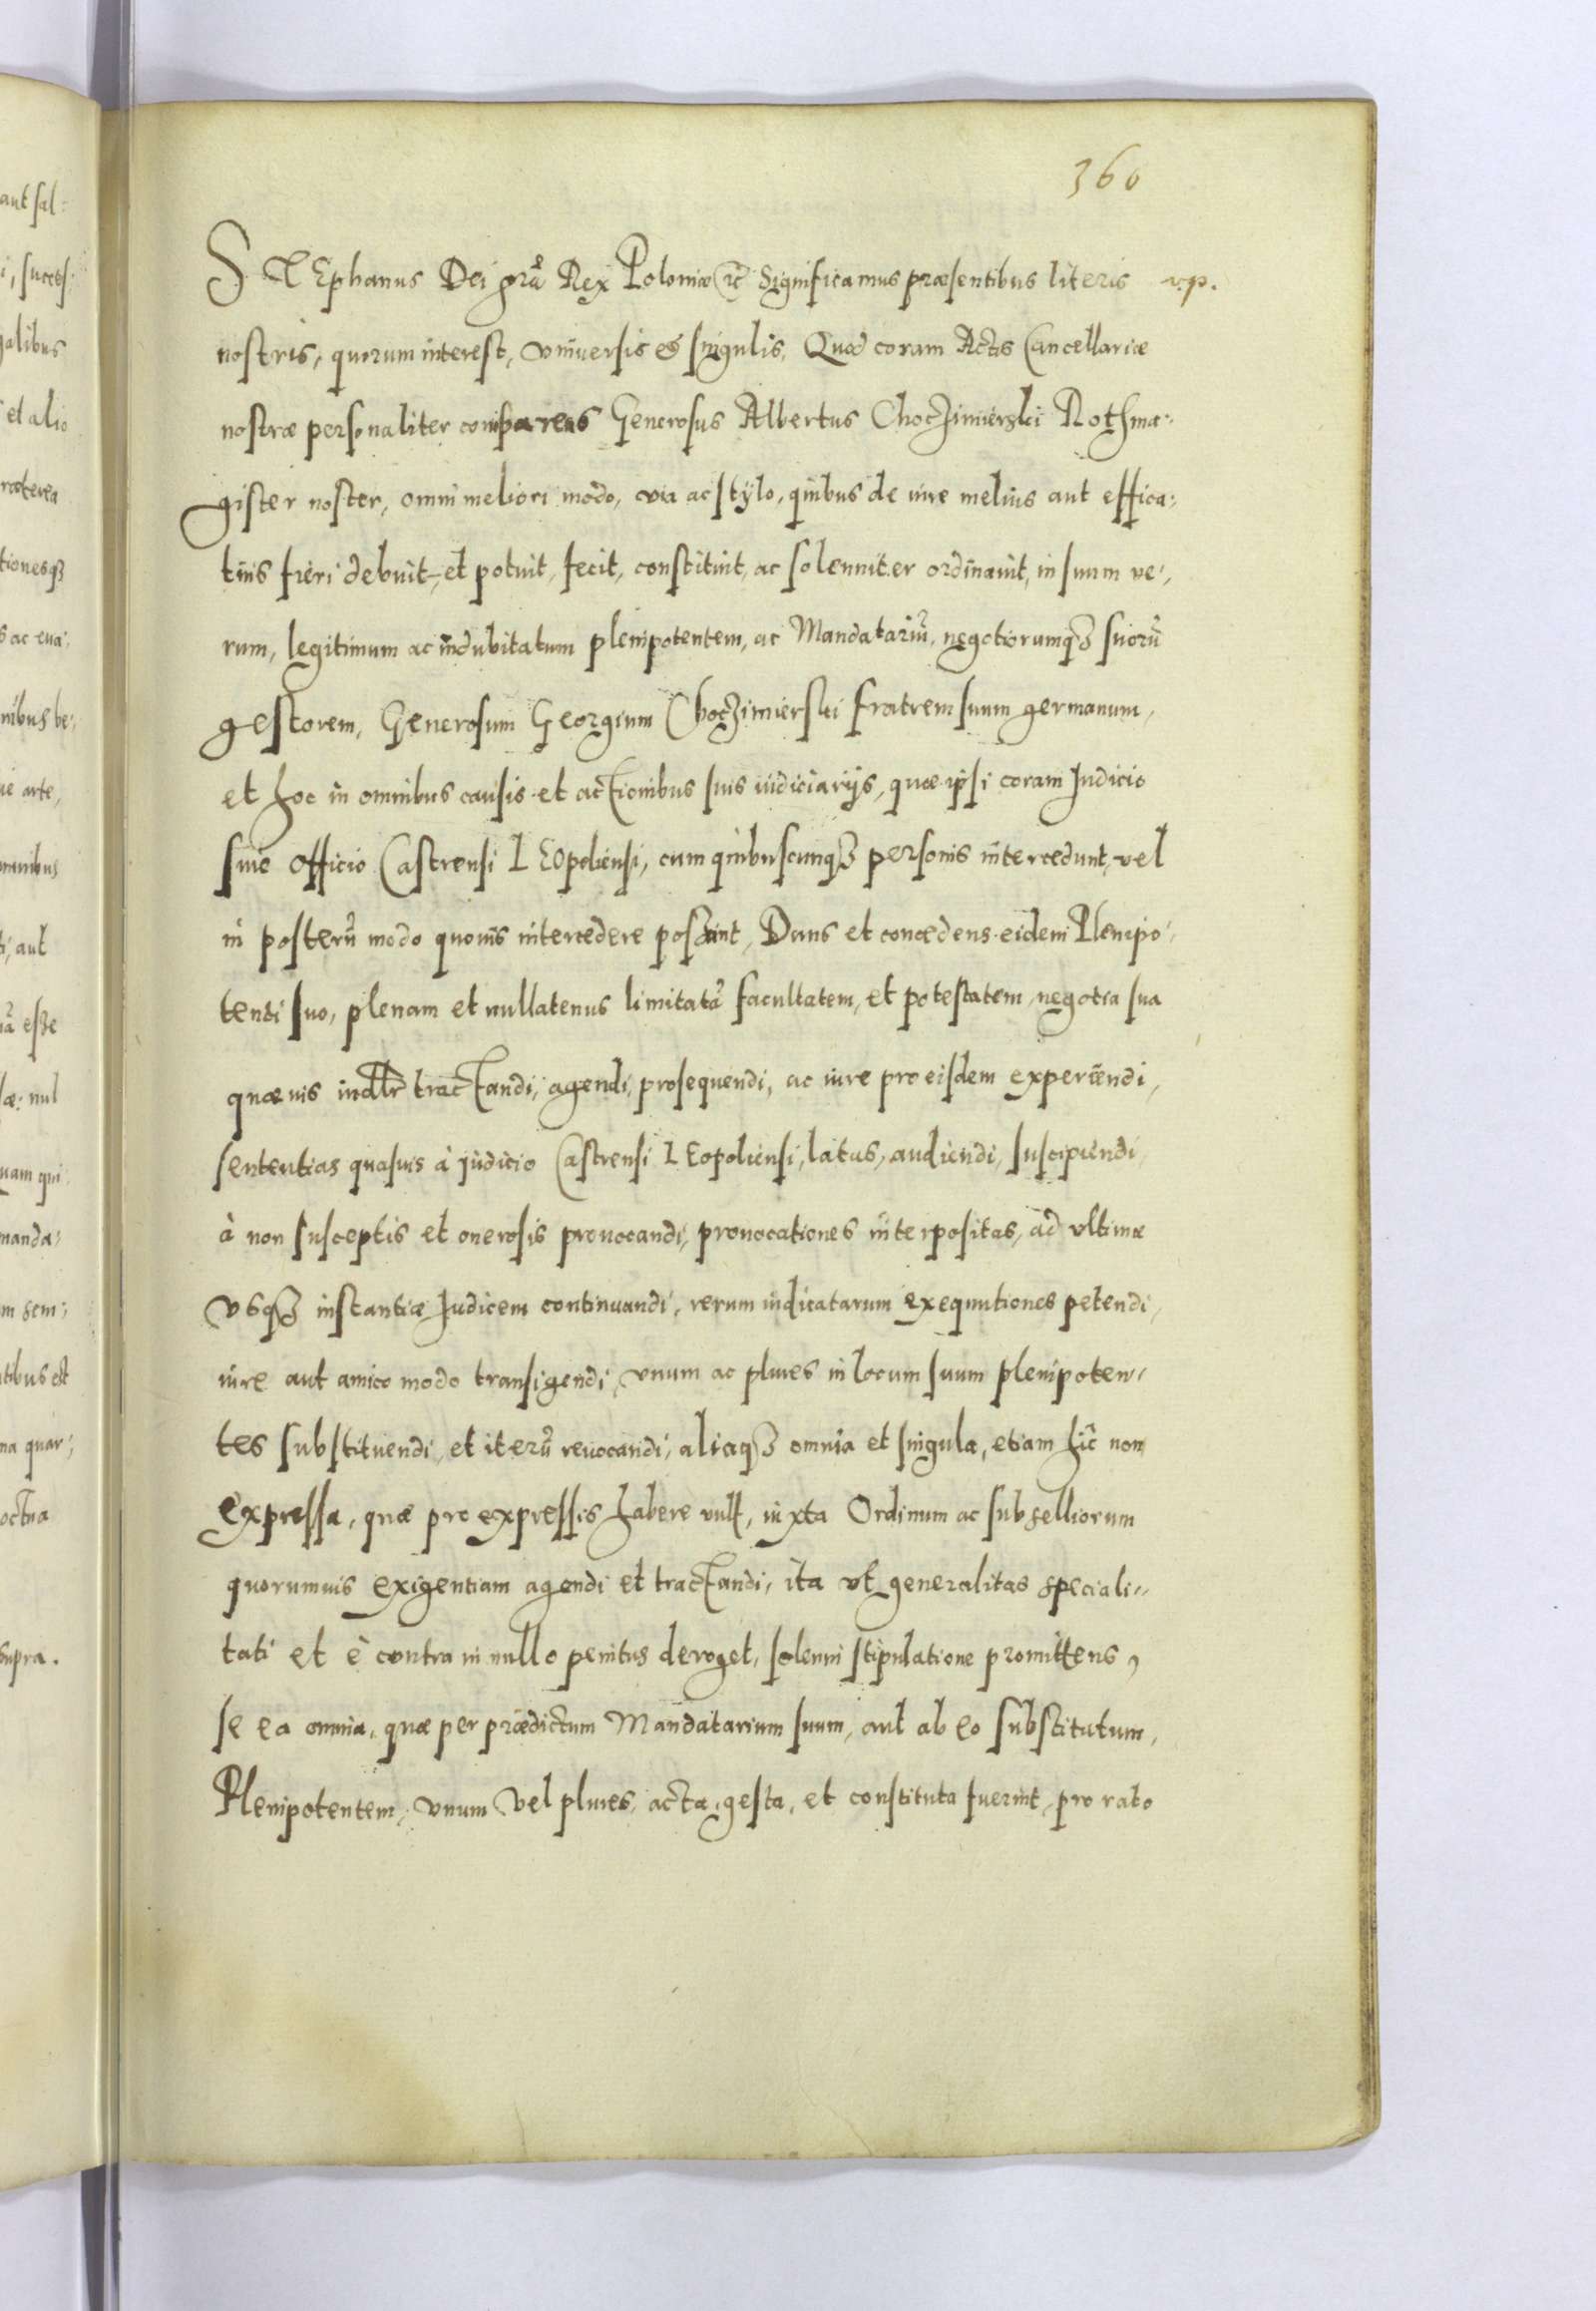 360
STEphanus Dei grã Rex Poloniæ etc̃ Significamus præsentibus literis v.p.
nostris, quorum interest, vniuersis et singulis, Quod coram Actis Cancellariæ
nostræ personaliter comparens Generosus Albertus Choczimierzki Rothma:
gister noster, omni meliori modo, via ac stylo, quibus de iure melius aut effica:
tius fieri debuit, et potuit, fecit, constituit, ac solenniter ordinauit, in suum ve,
rum, legitimum ac indubitatum plenipotentem, ac Mandatariũ, negotiorumq3 suorũ
gestorem, Generosum Georgium Choczimierski fratrem suum germanum,
et hoc in omnibus causis et actionibus suis iudiciarijs, quæ ipsi coram Judicio
siue officio Castrensi LEopoliensi, cum quibuscunq3 personis intercedunt, vel
in posterũ modo quouis intercedere possint, Dans et concedens eidem Plenipo,
tenti suo, plenam et nullatenus limitatã facultatem, et potestatem, negotia sua
quæuis tractandi, agendi, prosequendi, ac iure pro eisdem experiendi,
sententias quasuis à judicio Castrensi LEopoliensi, latas, audiendi, suscipiendi,
à non susceptis et onerosis prouocandi, prouocationes interpositas, ad vltimæ
vsq3 instantiæ Judicem continuandi, rerum iudicatarum exequutiones petendi,
iure aut amico modo transigendi, vnum ac plures in locum suum plenipoten,,
tes substituendi, et iterũ reuocandi, aliaq3 omnia et singula, etiam hîc non
expressa, quæ pro expressis habere vult, iuxta Ordinum ac subselliorum
quorumuis exigentiam agendi et tractandi, ita vt generalitas speciali,,
tati et è contra in nullo penitus deroget, solenni stipulatione promittens,
se ea omnia, quæ per prædictum Mandatarium suum, aut ab eo substitutum,
Plenipotentem, vnum vel plures, acta, gesta, et constituta fuerint, pro rato